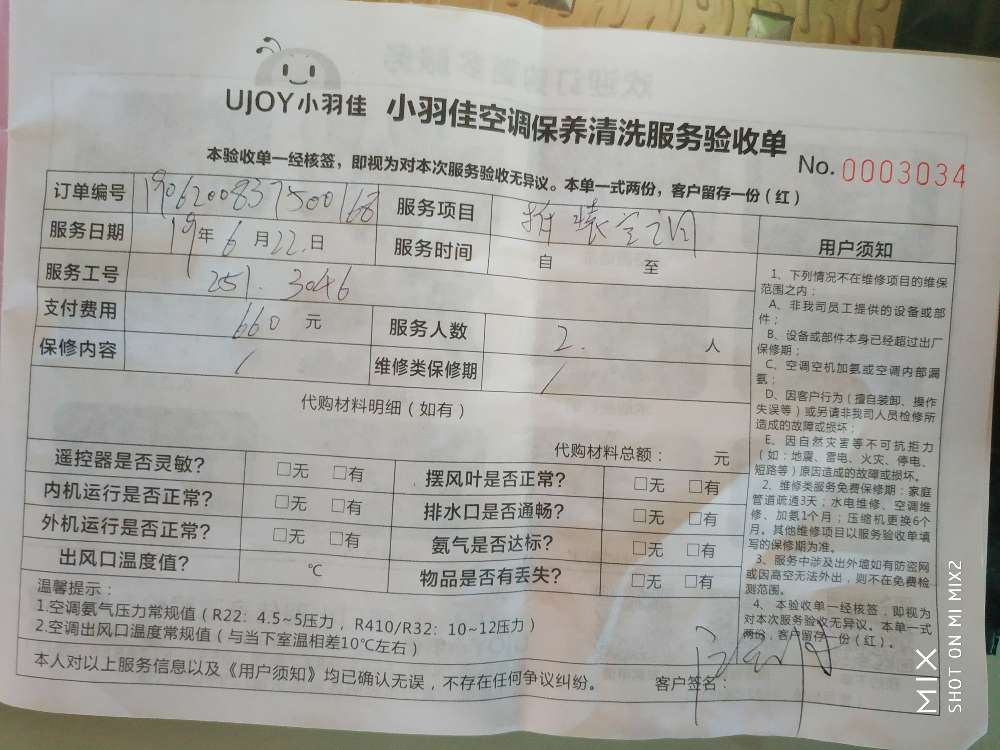 UJOY小羽佳 小羽佳空调保养清洗服务验收单
No. 0003034
本验收单一经核签，即视为对本次服务验收无异议。本单一式两份，客户留存一份（红）
订单编号 1906200837500168 服务项目 拆装空调
服务日期 19年6月22日 服务时间 自 至
服务工号 251. 3046
支付费用 660 元 服务人数 2. 人
保修内容 / 维修类保修期 /
代购材料明细（如有）
代购材料总额： 元
遥控器是否灵敏? □无 □有 摆风叶是否正常? □无 □有
内机运行是否正常? □无 □有 排水口是否通畅? □无 □有
外机运行是否正常? □无 □有 氨气是否达标? □无 □有
出风口温度值? ℃ 物品是否有丢失? □无 □有
温馨提示：
1.空调氨气压力常规值（R22：4.5~5压力，R410/R32：10~12压力）
2.空调出风口温度常规值（与当下室温相差10℃左右）
本人对以上服务信息以及《用户须知》均已确认无误，不存在任何争议纠纷。 客户签名：
用户须知
1、下列情况不在维修项目的维保
范围之内；
A、非我司员工提供的设备或部
件；
B、设备或部件本身已经超过出厂
保修期；
C、空调空机加氨或空调内部漏
氨；
D、因客户行为（擅自装卸、操作
失误等）或另请非我司人员检修所
造成的故障或损坏；
E、因自然灾害等不可抗拒力
（如：地震、雷电、火灾、停电、
短路等）原因造成的故障或损坏。
2、维修类服务免费保修期：家庭
管道疏通3天；水电维修、空调维
修、加氨1个月；压缩机更换6个
月。其他维修项目以服务验收单填
写的保修期为准。
3、服务中涉及出外墙如有防盗网
或因高空无法外出，则不在免费检
测范围。
4、本验收单一经核签，即视为
对本次服务验收无异议。本单一式
两份，客户留存一份（红）。
MIX
SHOT ON MI MIX2